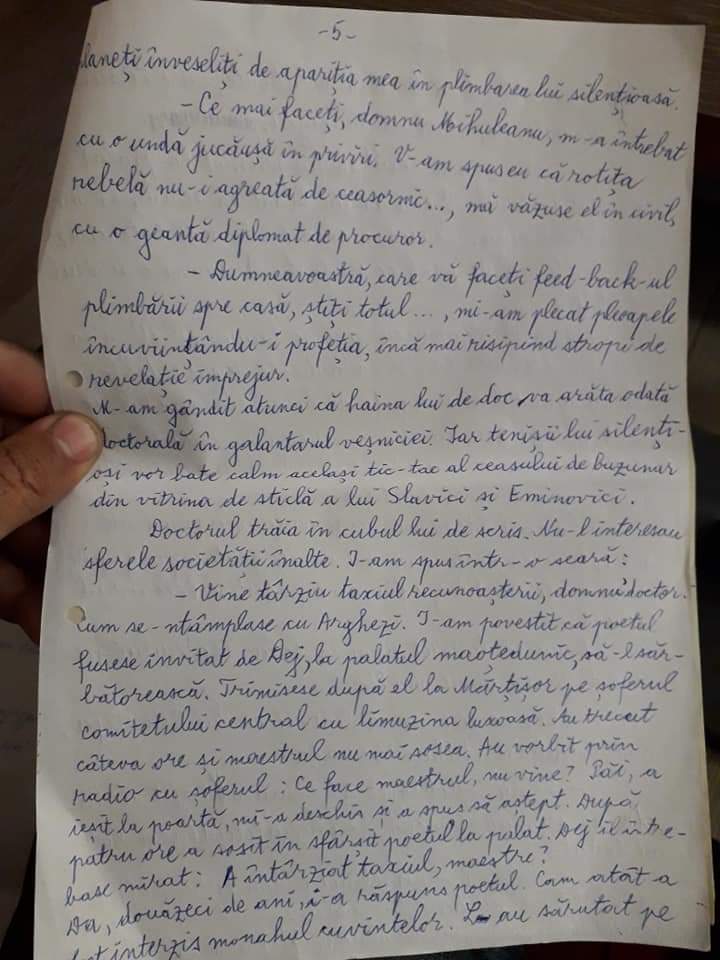 -5-
laneți înveseliți de apariția mea în plimbarea lui silențioasă.
- Ce mai faceți, domnu Mihuleanu, m-a întrebat
cu o undă jucăușă în priviri. V-am spus eu că rotița
rebelă nu-i agreată de ceasornic..., mă văzuse el în civil,
cu o geantă diplomat de procuror.
- Dumneavoastră, care vă faceți feed-back-ul
plimbării spre casă, știți totul..., mi-am plecat pleoapele
încuviințându-i profeția, încă mai risipind stropi de
revelație împrejur.
M-am gândit atunci că haina lui de doc va arăta odată
doctorală în galantarul veșniciei. Iar tenișii lui silenți-
oși vor bate calm același tic-tac al ceasului de buzunar
din vitrina de sticlă a lui Slavici și Eminovici.
Doctorul trăia în cubul lui de scris. Nu-l interesau
sferele societății înalte. I-am spus într-o seară:
- Vine târziu taxiul recunoașterii, domnu' doctor.
Cum se-ntâmplase cu Arghezi. I-am povestit că poetul
fusese invitat de Dej, la palatul maoțedunic, să-l săr-
bătorească. Trimisese după el la Mărțișor pe șoferul
comitetului central cu limuzina luxoasă. Au trecut
câteva ore și maestrul nu mai sosea. Au vorbit prin
radio cu șoferul: Ce face maestrul, nu vine? Păi, a
ieșit la poartă, mi-a deschis și a spus să aștept. După
patru ore a sosit în sfârșit poetul la palat. Dej îl între-
base mirat: A întârziat taxiul, maestre?
Da, douăzeci de ani, i-a răspuns poetul. Cam atât a
interzis monahul cuvintelor. L-au sărutat pe